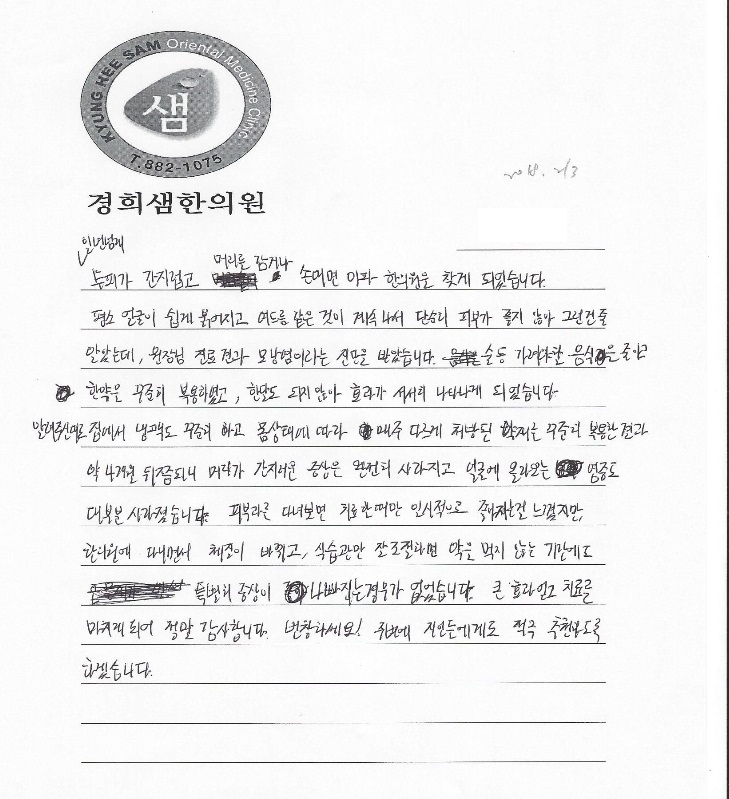 KYUNG HEE SAM Oriental Medicine Clinic
샘
T.882-1075
경희샘한의원
2018. 2/3
일년넘게
두피가 간지럽고 머리를 감거나 손대면 아파 한의원을 찾게 되었습니다.
평소 얼굴이 쉽게 붉어지고 여드름 같은 것이 계속 나서 단순히 피부가 좋지 않아 그런건줄
알았는데, 원장님 진료 결과 모낭염이라는 진단을 받았습니다. 술등 가려야할 음식을 줄이고
한약은 꾸준히 복용하였고, 한달도 되지 않아 효과가 서서히 나타나게 되었습니다.
알려주신대로 집에서 냉팩도 꾸준히 하고 몸상태에 따라 매주 다르게 처방된 한약을 꾸준히 복용한 결과
약 4개월 뒤쯤되니 머리가 간지러운 증상은 완전히 사라지고 얼굴에 올라오는 염증도
대부분 사라졌습니다. 피부과를 다녀보면 치료할때만 일시적으로 좋아지는걸 느꼈지만,
한의원에 다니면서 체질이 바뀌고, 식습관만 잘 조절하면 약을 먹지 않는 기간에도
특별히 증상이 나빠지는경우가 없었습니다. 큰 효과얻고 치료를
마치게 되어 정말 감사합니다. 번창하세요! 주변에 지인들에게도 적극 추천하도록
하겠습니다.